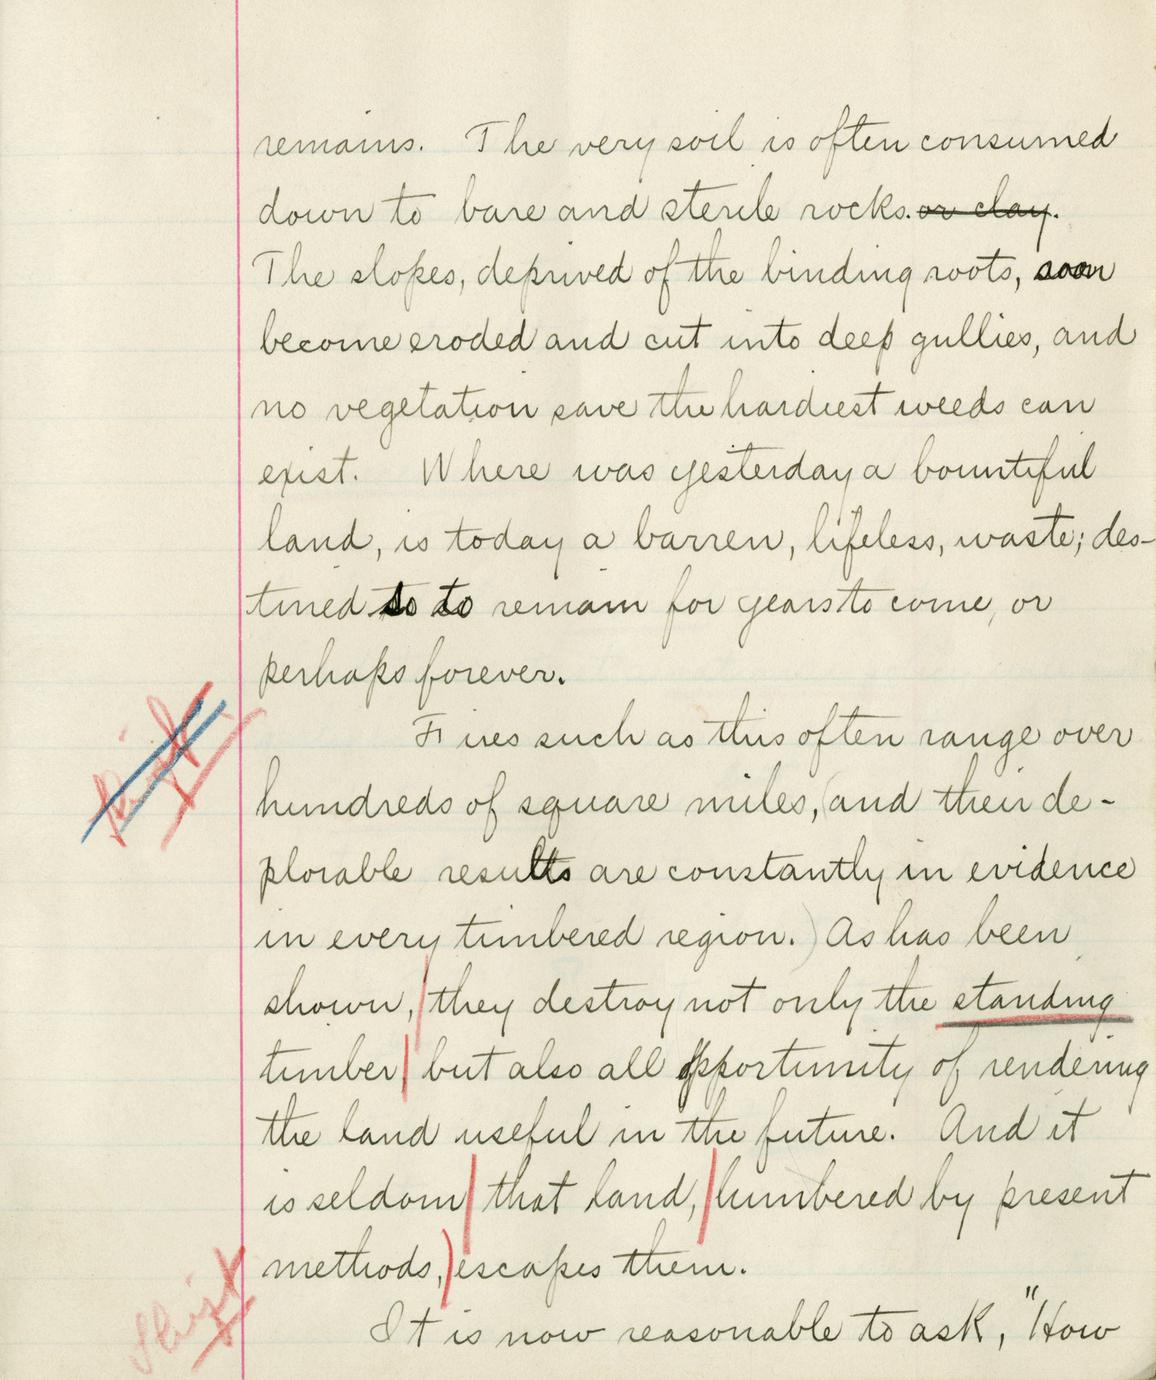 remains. The very soil is often consumed
down to bare and sterile rocks. or clay.
The slopes, deprived of the binding roots, soon
become eroded and cut into deep gullies, and
no vegetation save the hardiest weeds can
exist. Where was yesterday a bountiful
land, is today a barren, lifeless, waste; des-
tined to to remain for years to come, or
perhaps forever.
Fires such as this often range over
hundreds of square miles, (and their de-
plorable results are constantly in evidence
in every timbered region.) As has been
shown, they destroy not only the standing
timber but also all opportunity of rendering
the land useful in the future. And it
is seldom that land, lumbered by present
methods, escapes them.
It is now reasonable to ask, "How